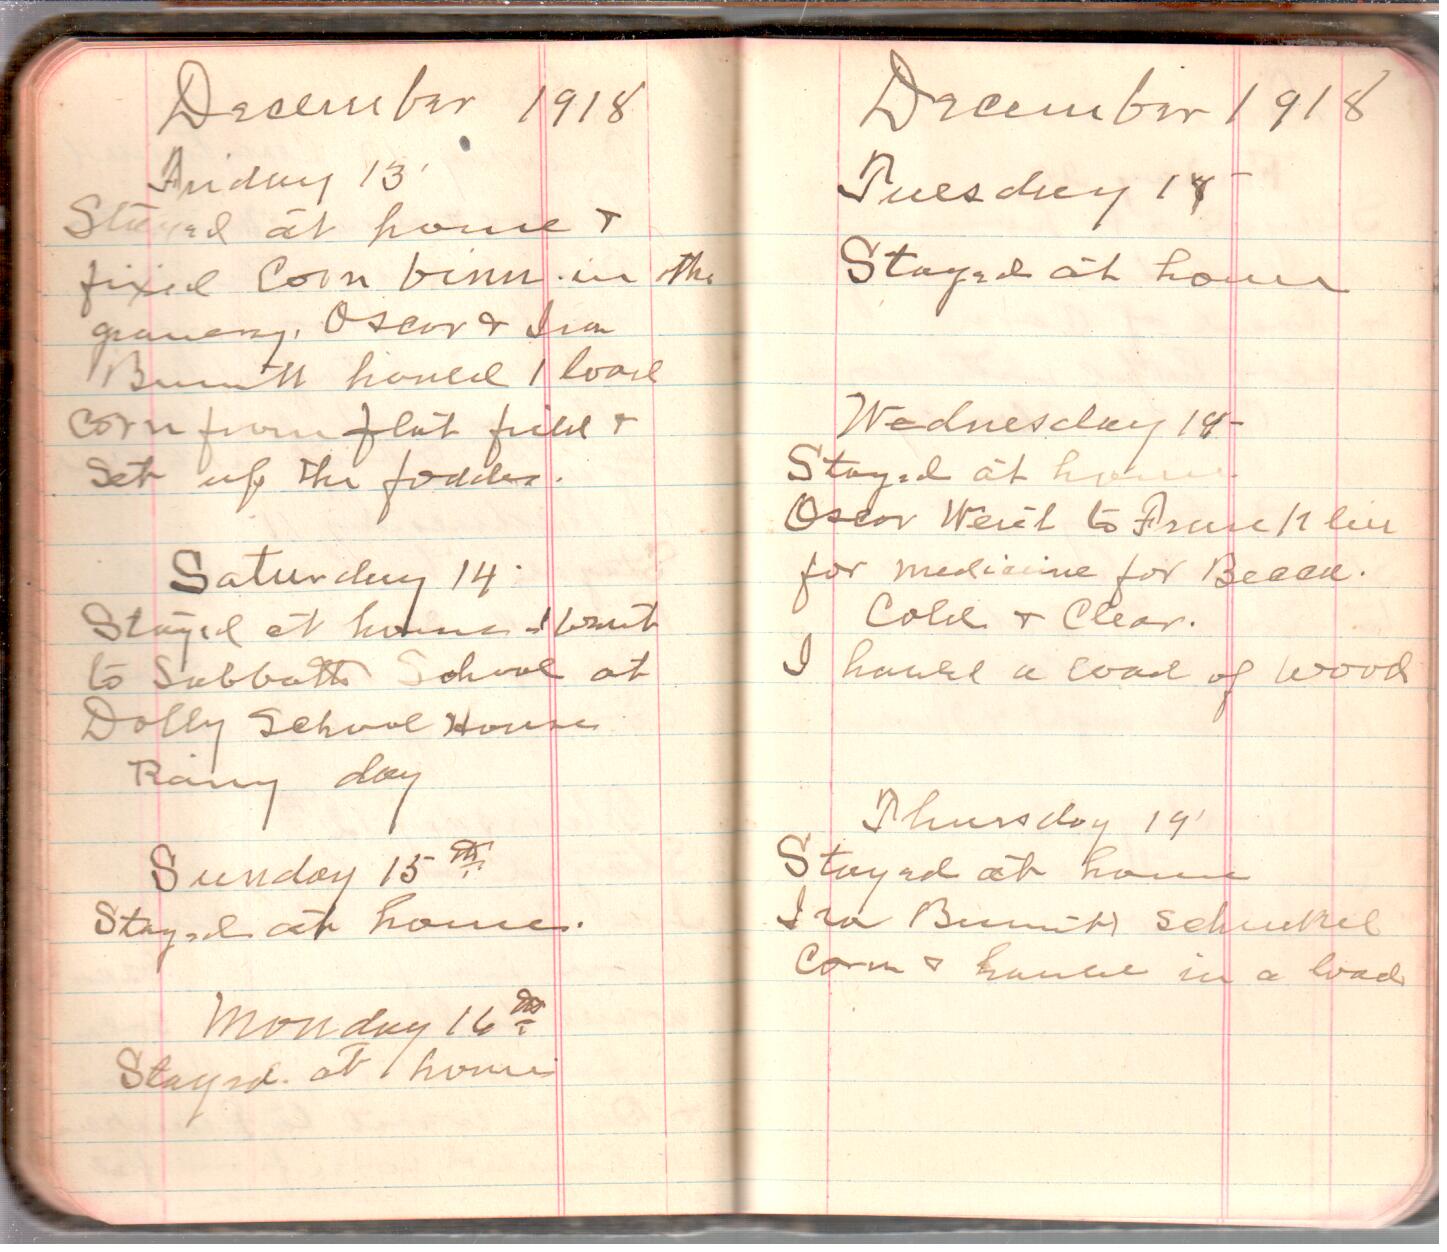 December 1918
Friday 13
Stayed at home &
fixed Corn binn in the
granery. Oscor & Ira
Burnitt hauled 1 load
corn from flat field &
Set up the fodder.
Saturday 14
Stayed at home I went
to Sabbath School at
Dolly School House
Rainy day
Sunday 15th
Stayed at home.
Monday 16th
Stayed at home
December 1918
Tuesday 17
Stayed at home
Wednesday 18
Stayed at home
Oscor Went to Franklin
for medicine for Becca.
Cold & Clear.
I hauled a load of wood
Thursday 19
Stayed at home
Ira Burnitt Schucked
Corn & hauled in a load